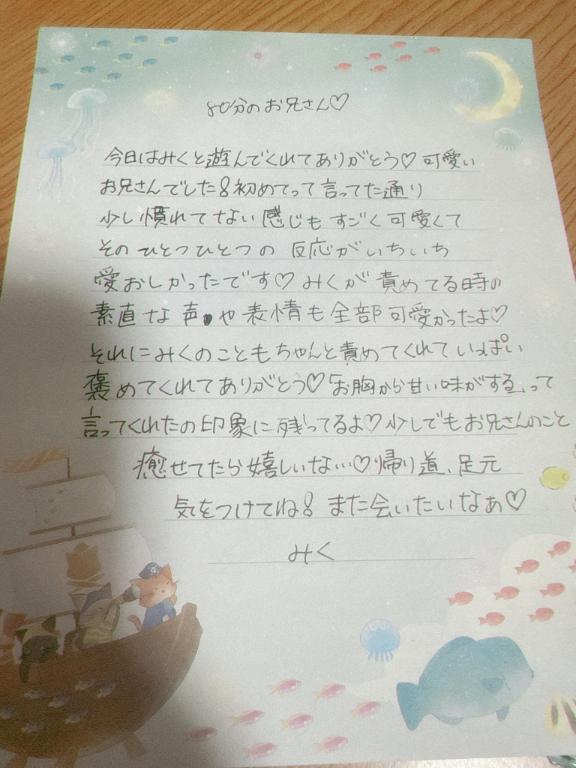 80分のお兄さん♡
今日はみくと遊んでくれてありがとう♡可愛い
お兄さんでした!初めてって言ってた通り
少し慣れてない感じもすごく可愛くて
そのひとつひとつの反応がいちいち
愛おしかったです♡みくが責めてる時の
素直な声や表情も全部可愛かったよ♡
それにみくのこともちゃんと責めてくれていっぱい
褒めてくれてありがとう♡「お胸から甘い味がする」って
言ってくれたの印象に残ってるよ♡少しでもお兄さんのこと
癒せてたら嬉しいな…♡帰り道、足元
気をつけてね!また会いたいなぁ♡
みく